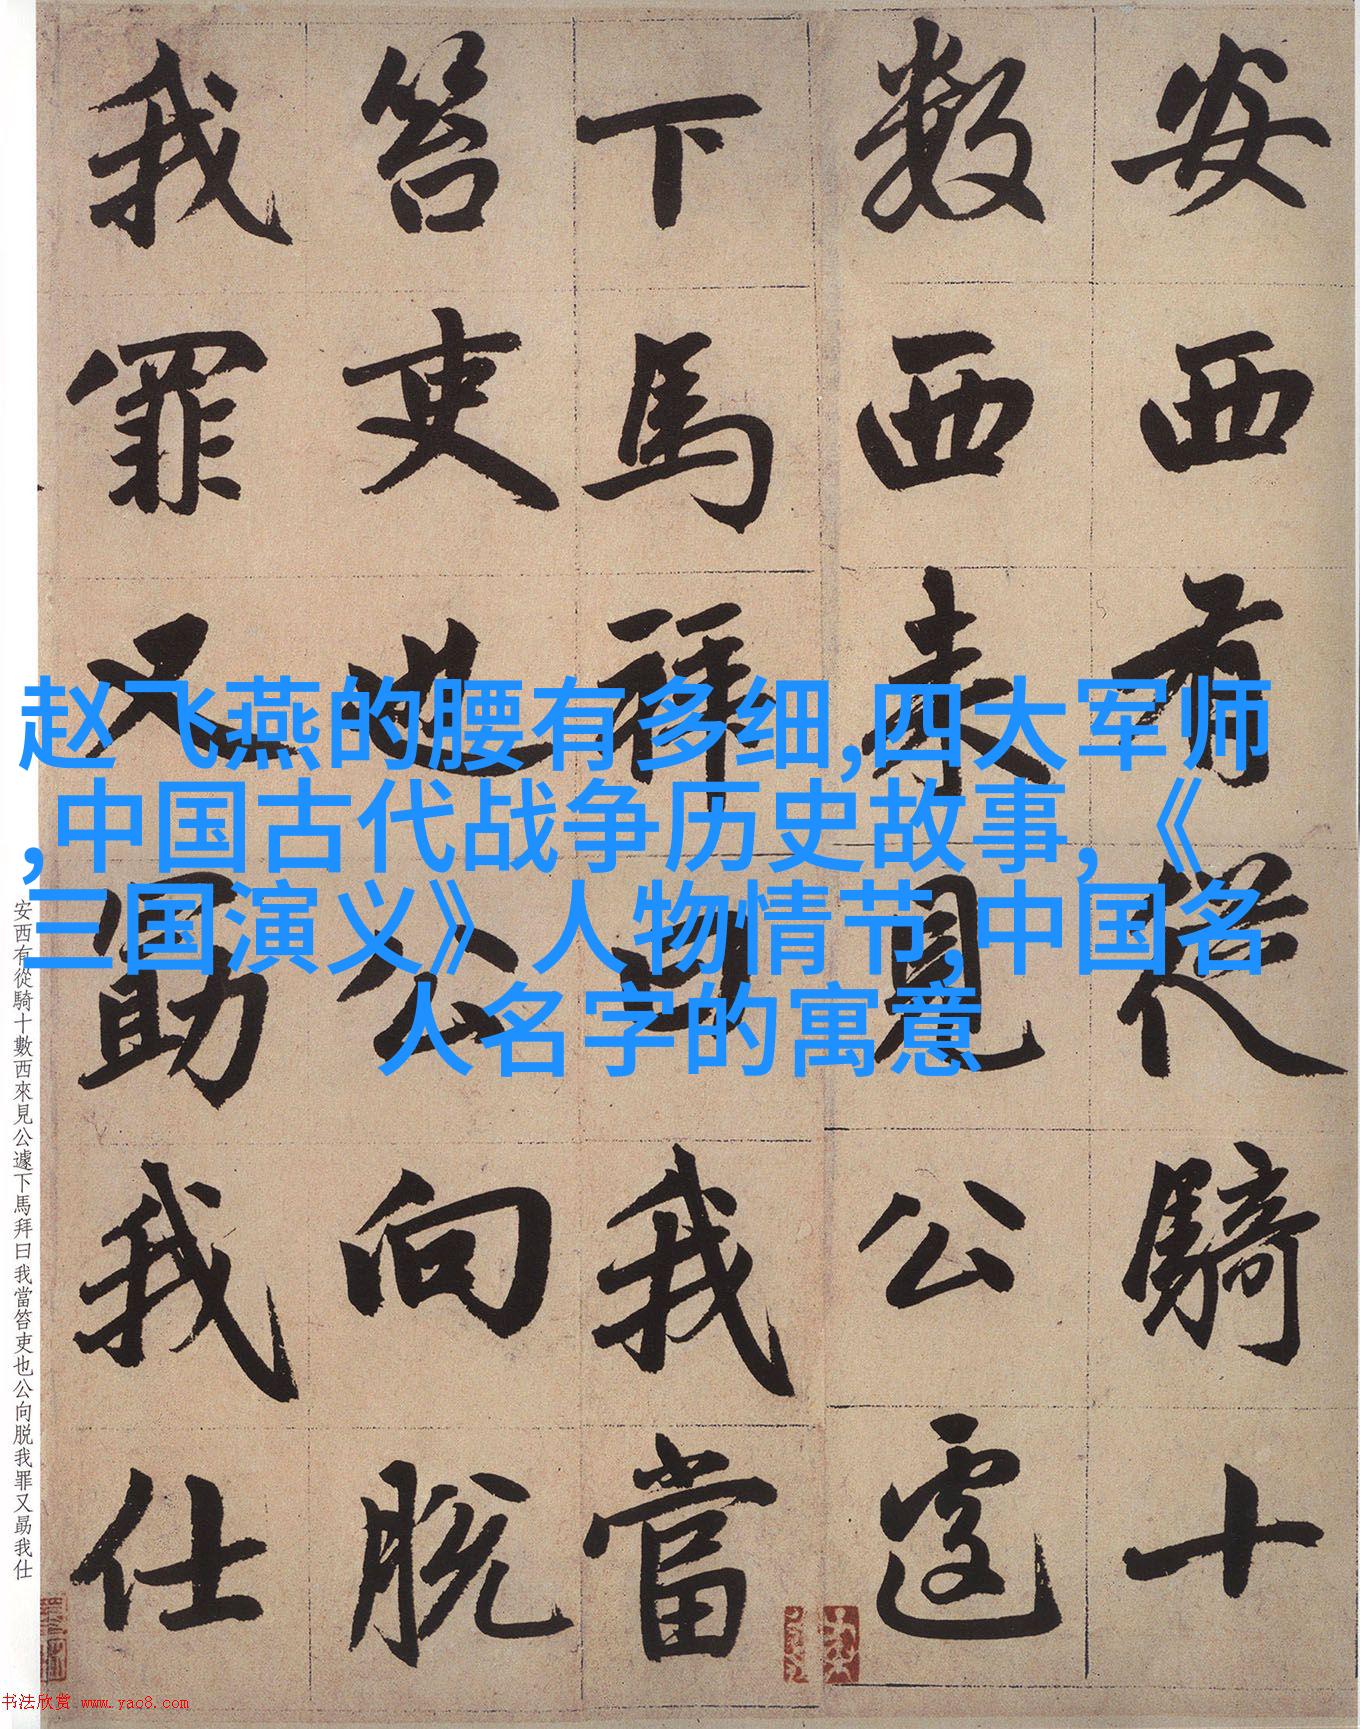 安西有從騎十
數西来見公遽
下馬拜曰我當
笞吏也公向脱
我罪又勗我仕
赵飞燕的腰有多细,四大军师
,中国古代战争历史故事,《
三国演义》人物情节,中国名
人名字的寓意
安西有從騎十數西來見公遽下馬拜曰我當笞吏也公向脱我罪又勗我仕
书法欣赏 www.yac8.com